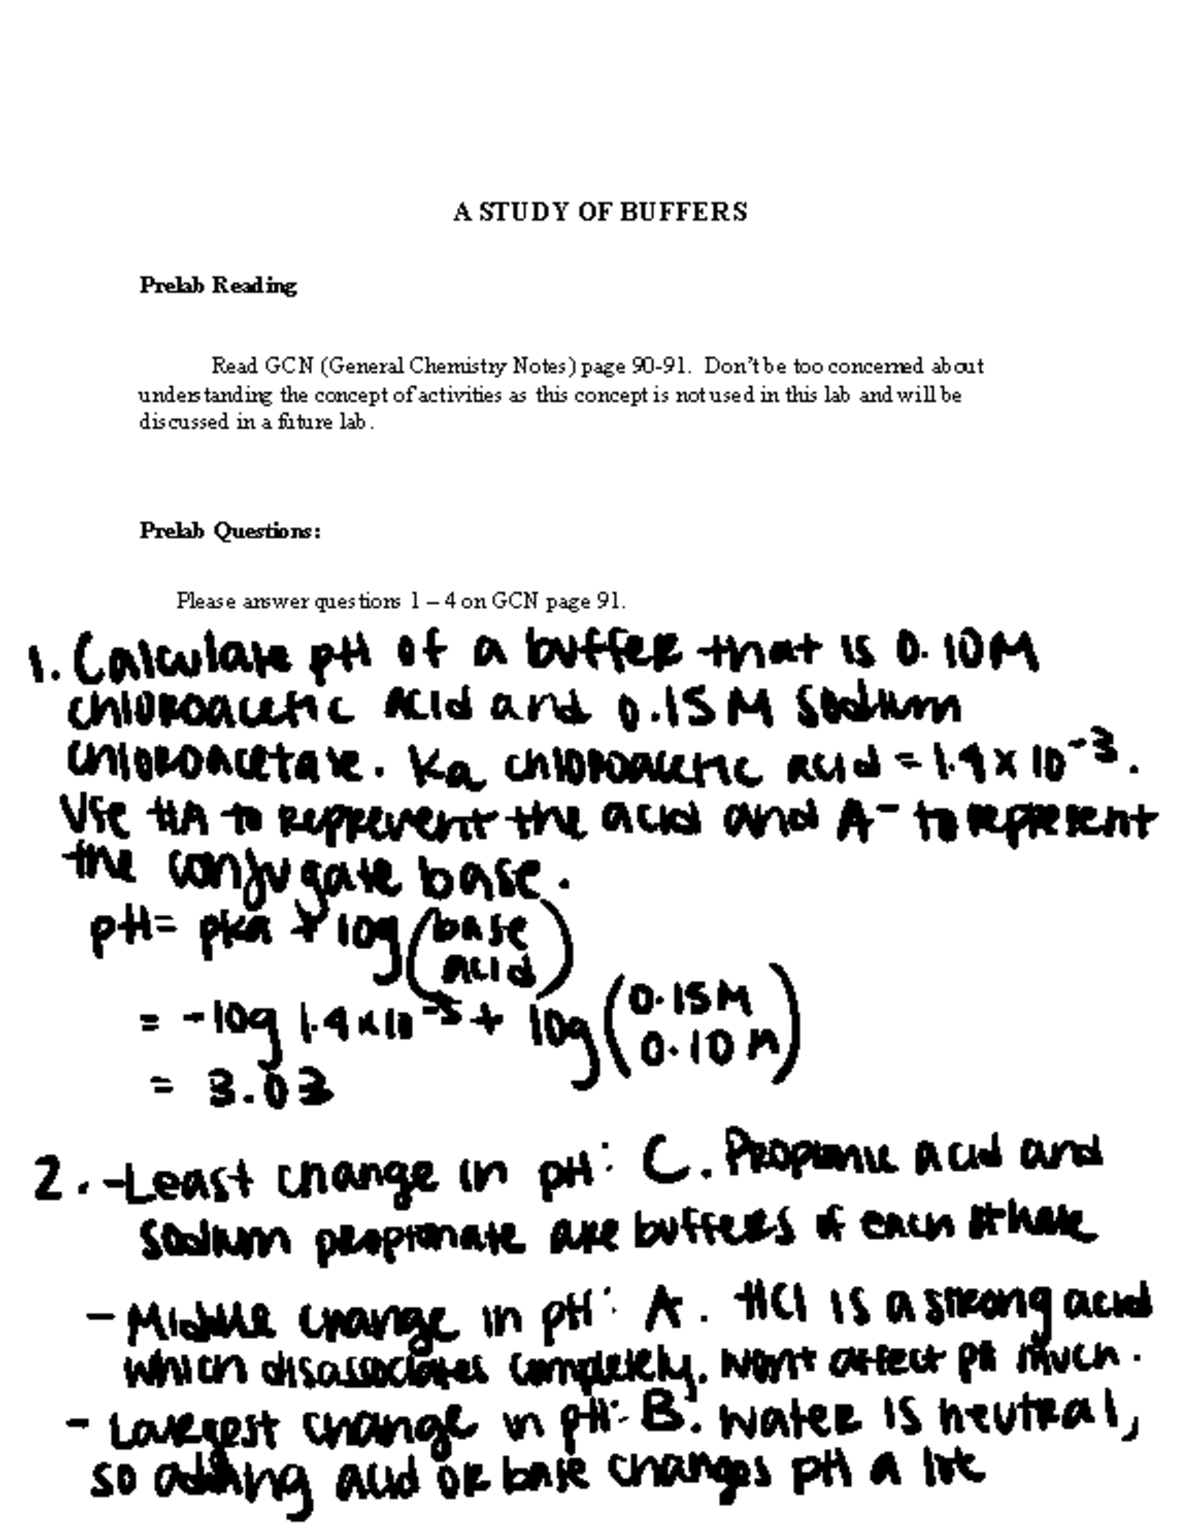 A STUDY OF BUFFERS
Prelab Reading
Read GCN (General Chemistry Notes) page 90-91. Don't be too concerned about
understanding the concept of activities as this concept is not used in this lab and will be
discussed in a future lab.
Prelab Questions:
Please answer questions 1 – 4 on GCN page 91.
1. Calculate pH of a buffer that is 0.10M
chloroacetic acid and 0.15M sodium
chloroacetate. Ka chloroacetic acid = 1.4 x 10⁻³.
Use HA to represent the acid and A⁻ to represent
the conjugate base.
pH= pka + log (base
acid)
= -log 1.4 x 10⁻³ + log (0.15M
0.10M)
= 3.03
2. -Least change in pH: C. Propionic acid and
sodium propionate are buffers of each other
- Middle change in pH: A. HCl is a strong acid
which disassociates completely. Won't affect pH much.
- Largest change in pH: B. Water is neutral,
so adding acid or base changes pH a lot